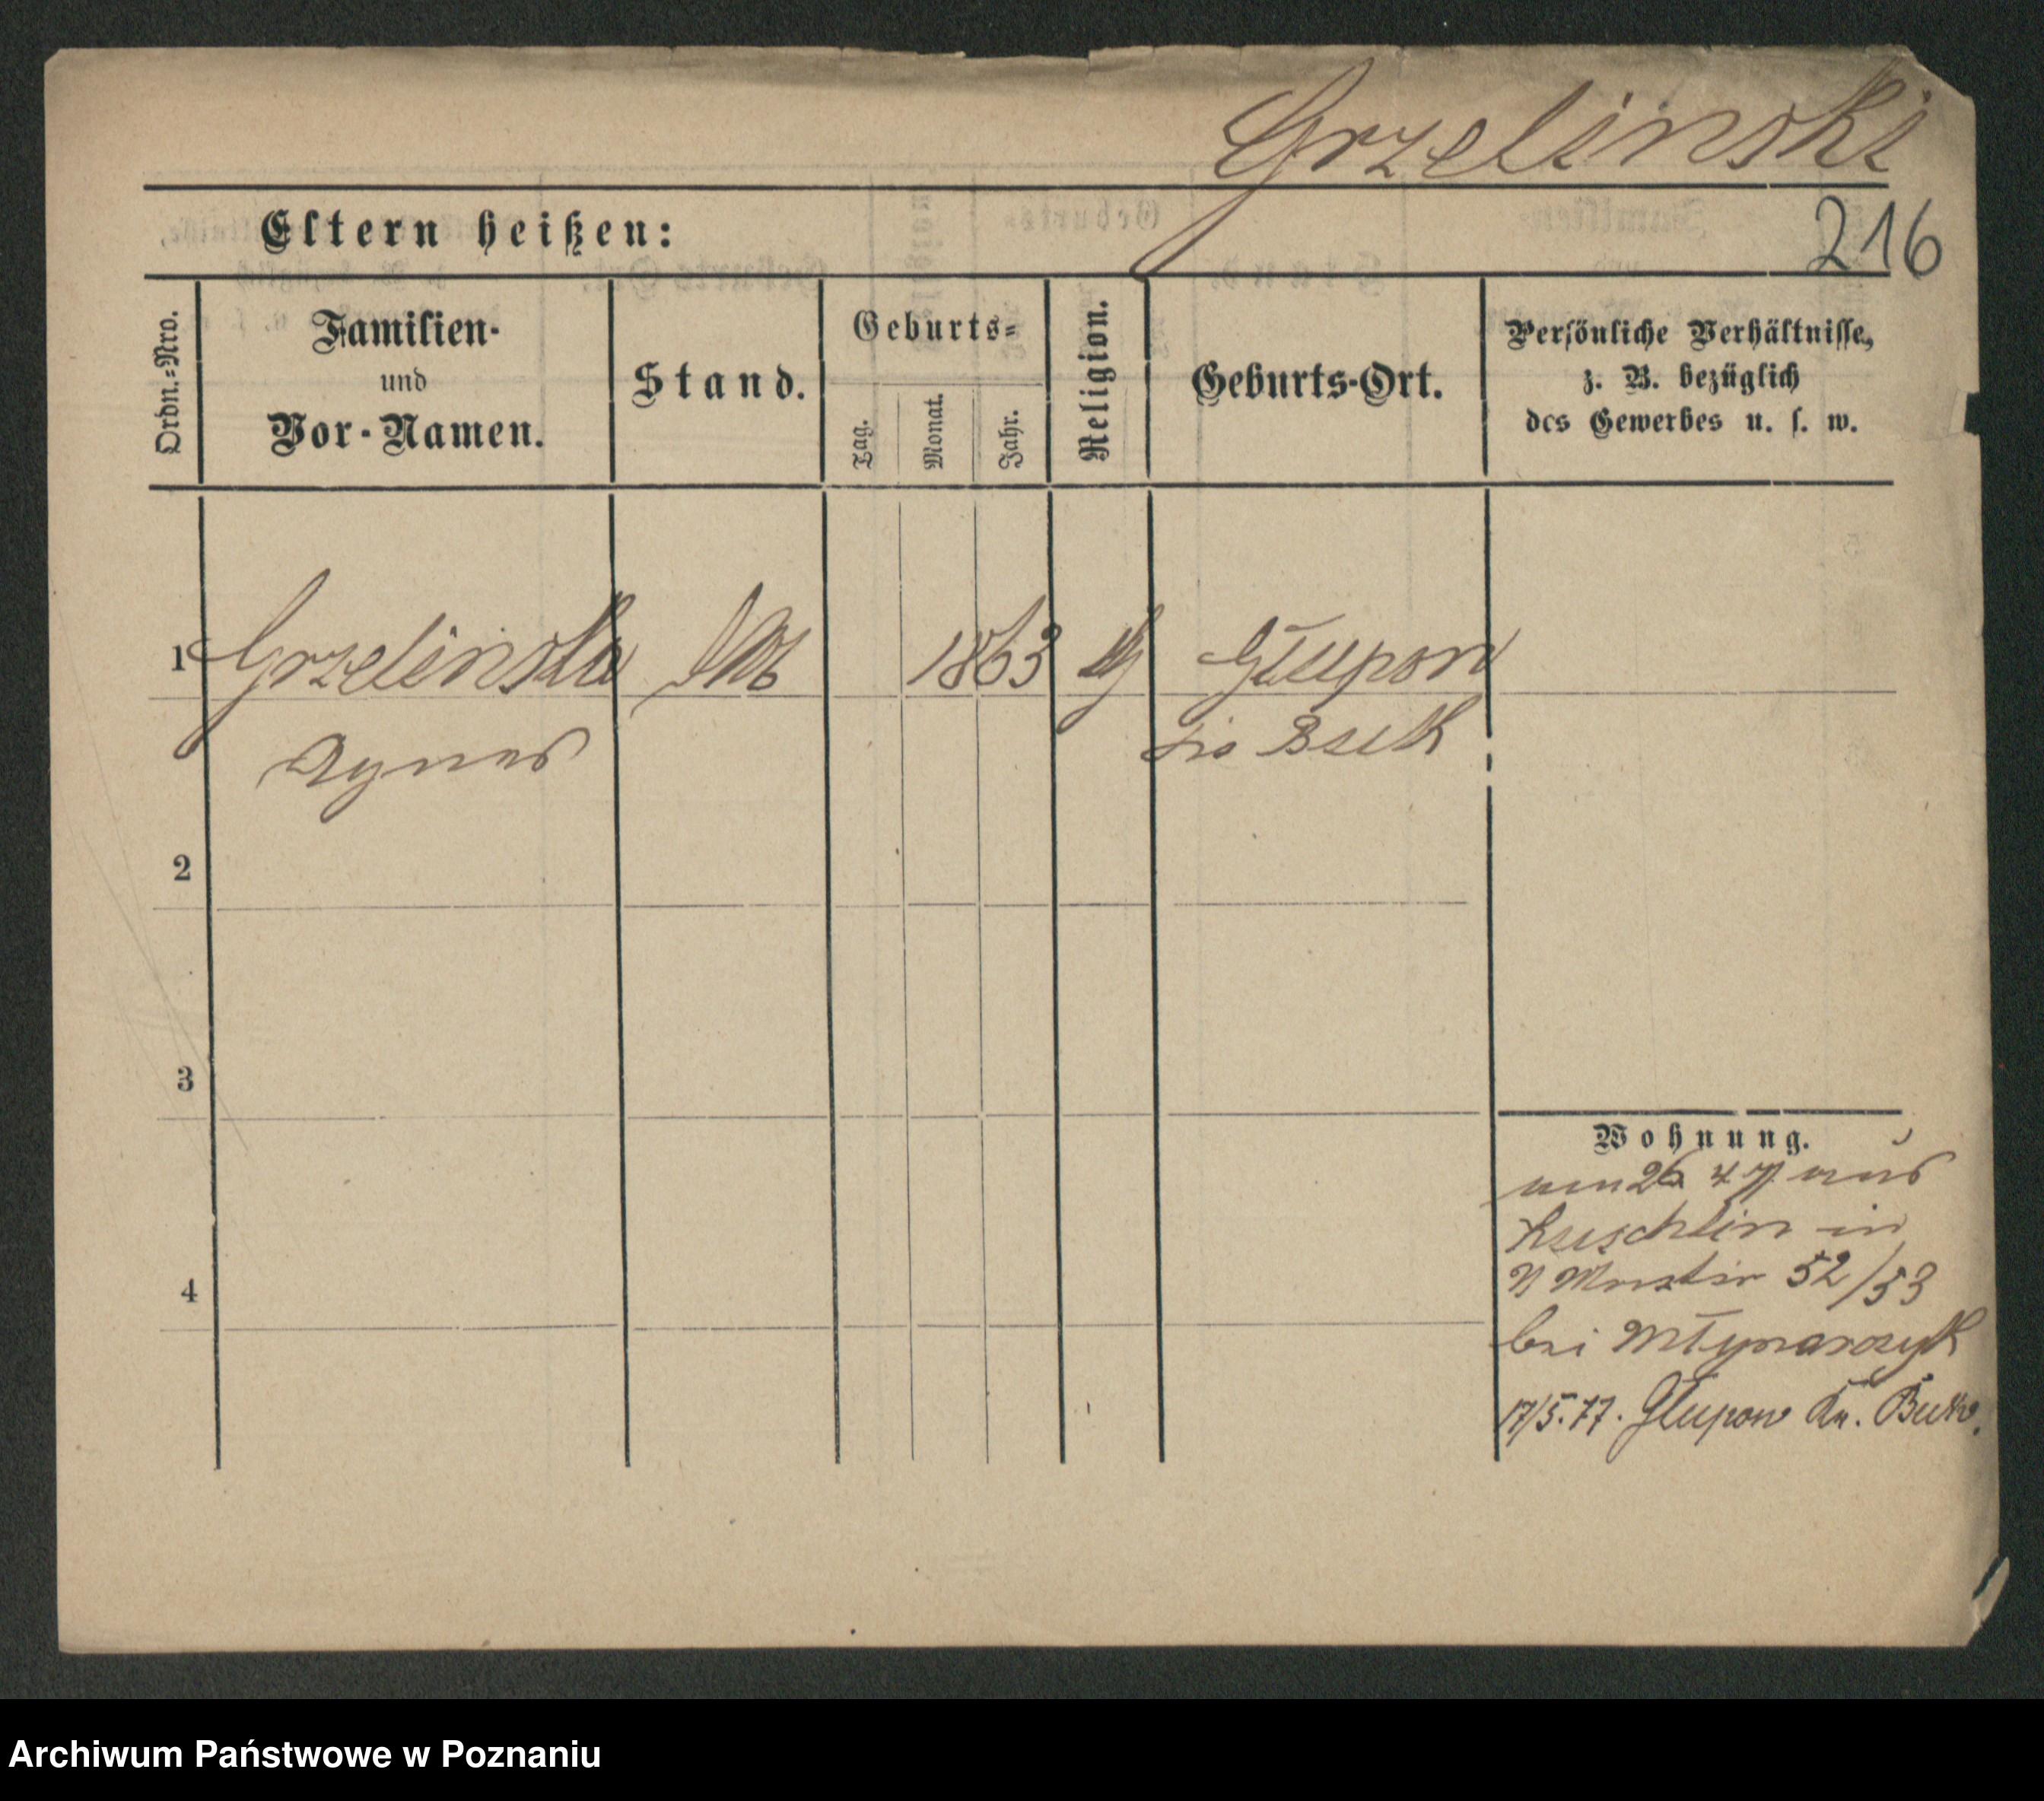 Grzelinski
216
Eltern heißen:
Ordn.=Nro.
Familien-
und
Vor-Namen.
Stand.
Geburts=
Tag.
Monat.
Jahr.
Religion.
Geburts-Ort.
Persönliche Verhältnisse,
z. B. bezüglich
des Gewerbes u. s. w.
1 Grzelinska 1863 Głupon
Agnes Buk
2
3
4
Wohnung.
26 4 77 aus
Kuschlin in
52/53
bei Młynarczyk
17/5.77. Glupon Kr. Buk.
Archiwum Państwowe w Poznaniu